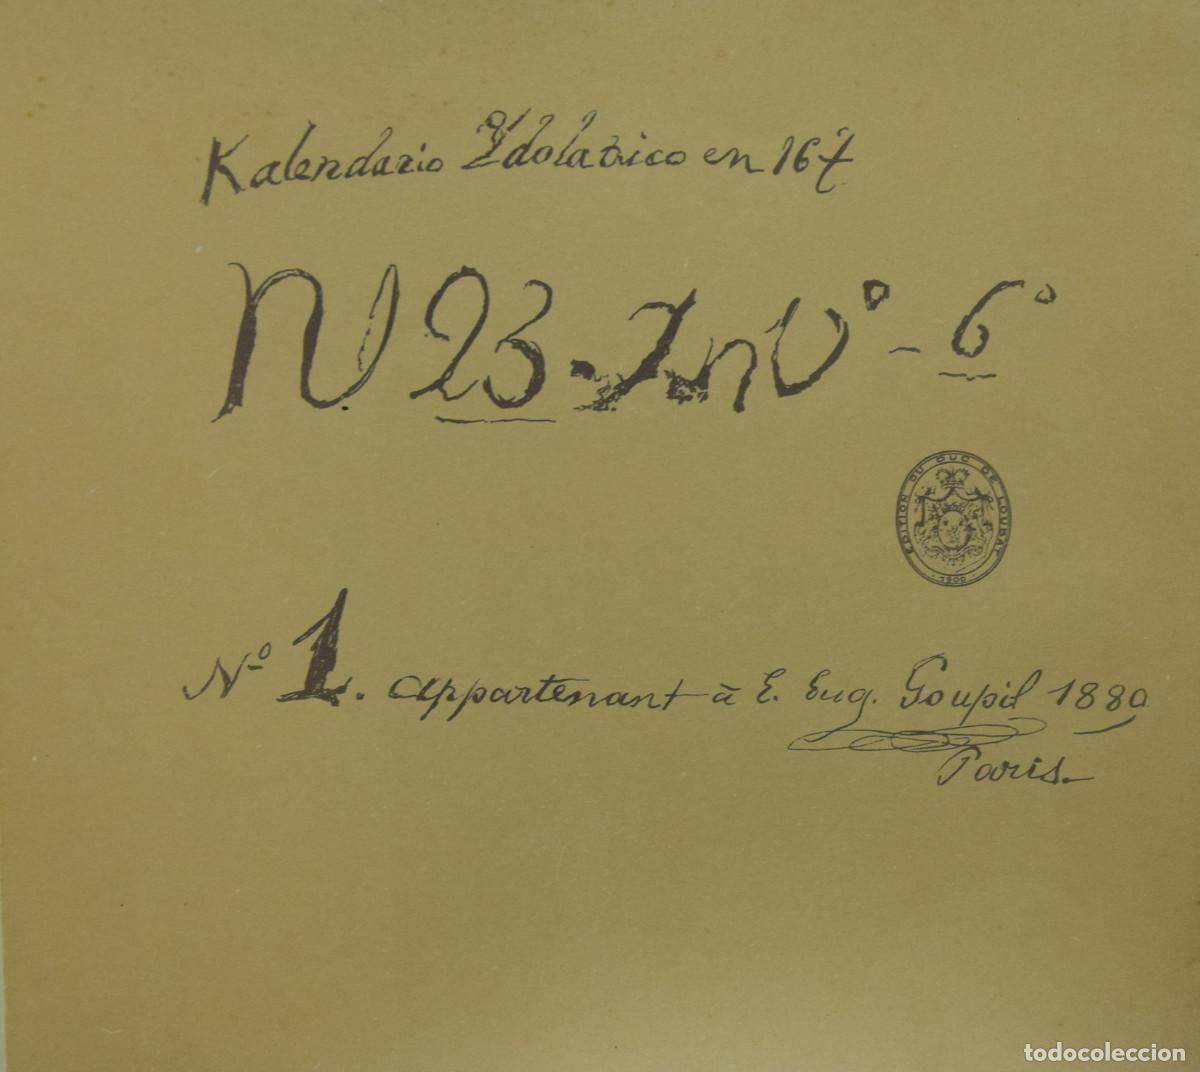 Kalendario Ydolatrico en 167
N 23. Inv° - 6°
EDITION DU DUC DE LOUBAT
1900
Nº 1. appartenant à E. Eug. Goupil 1889
Paris.
todocoleccion